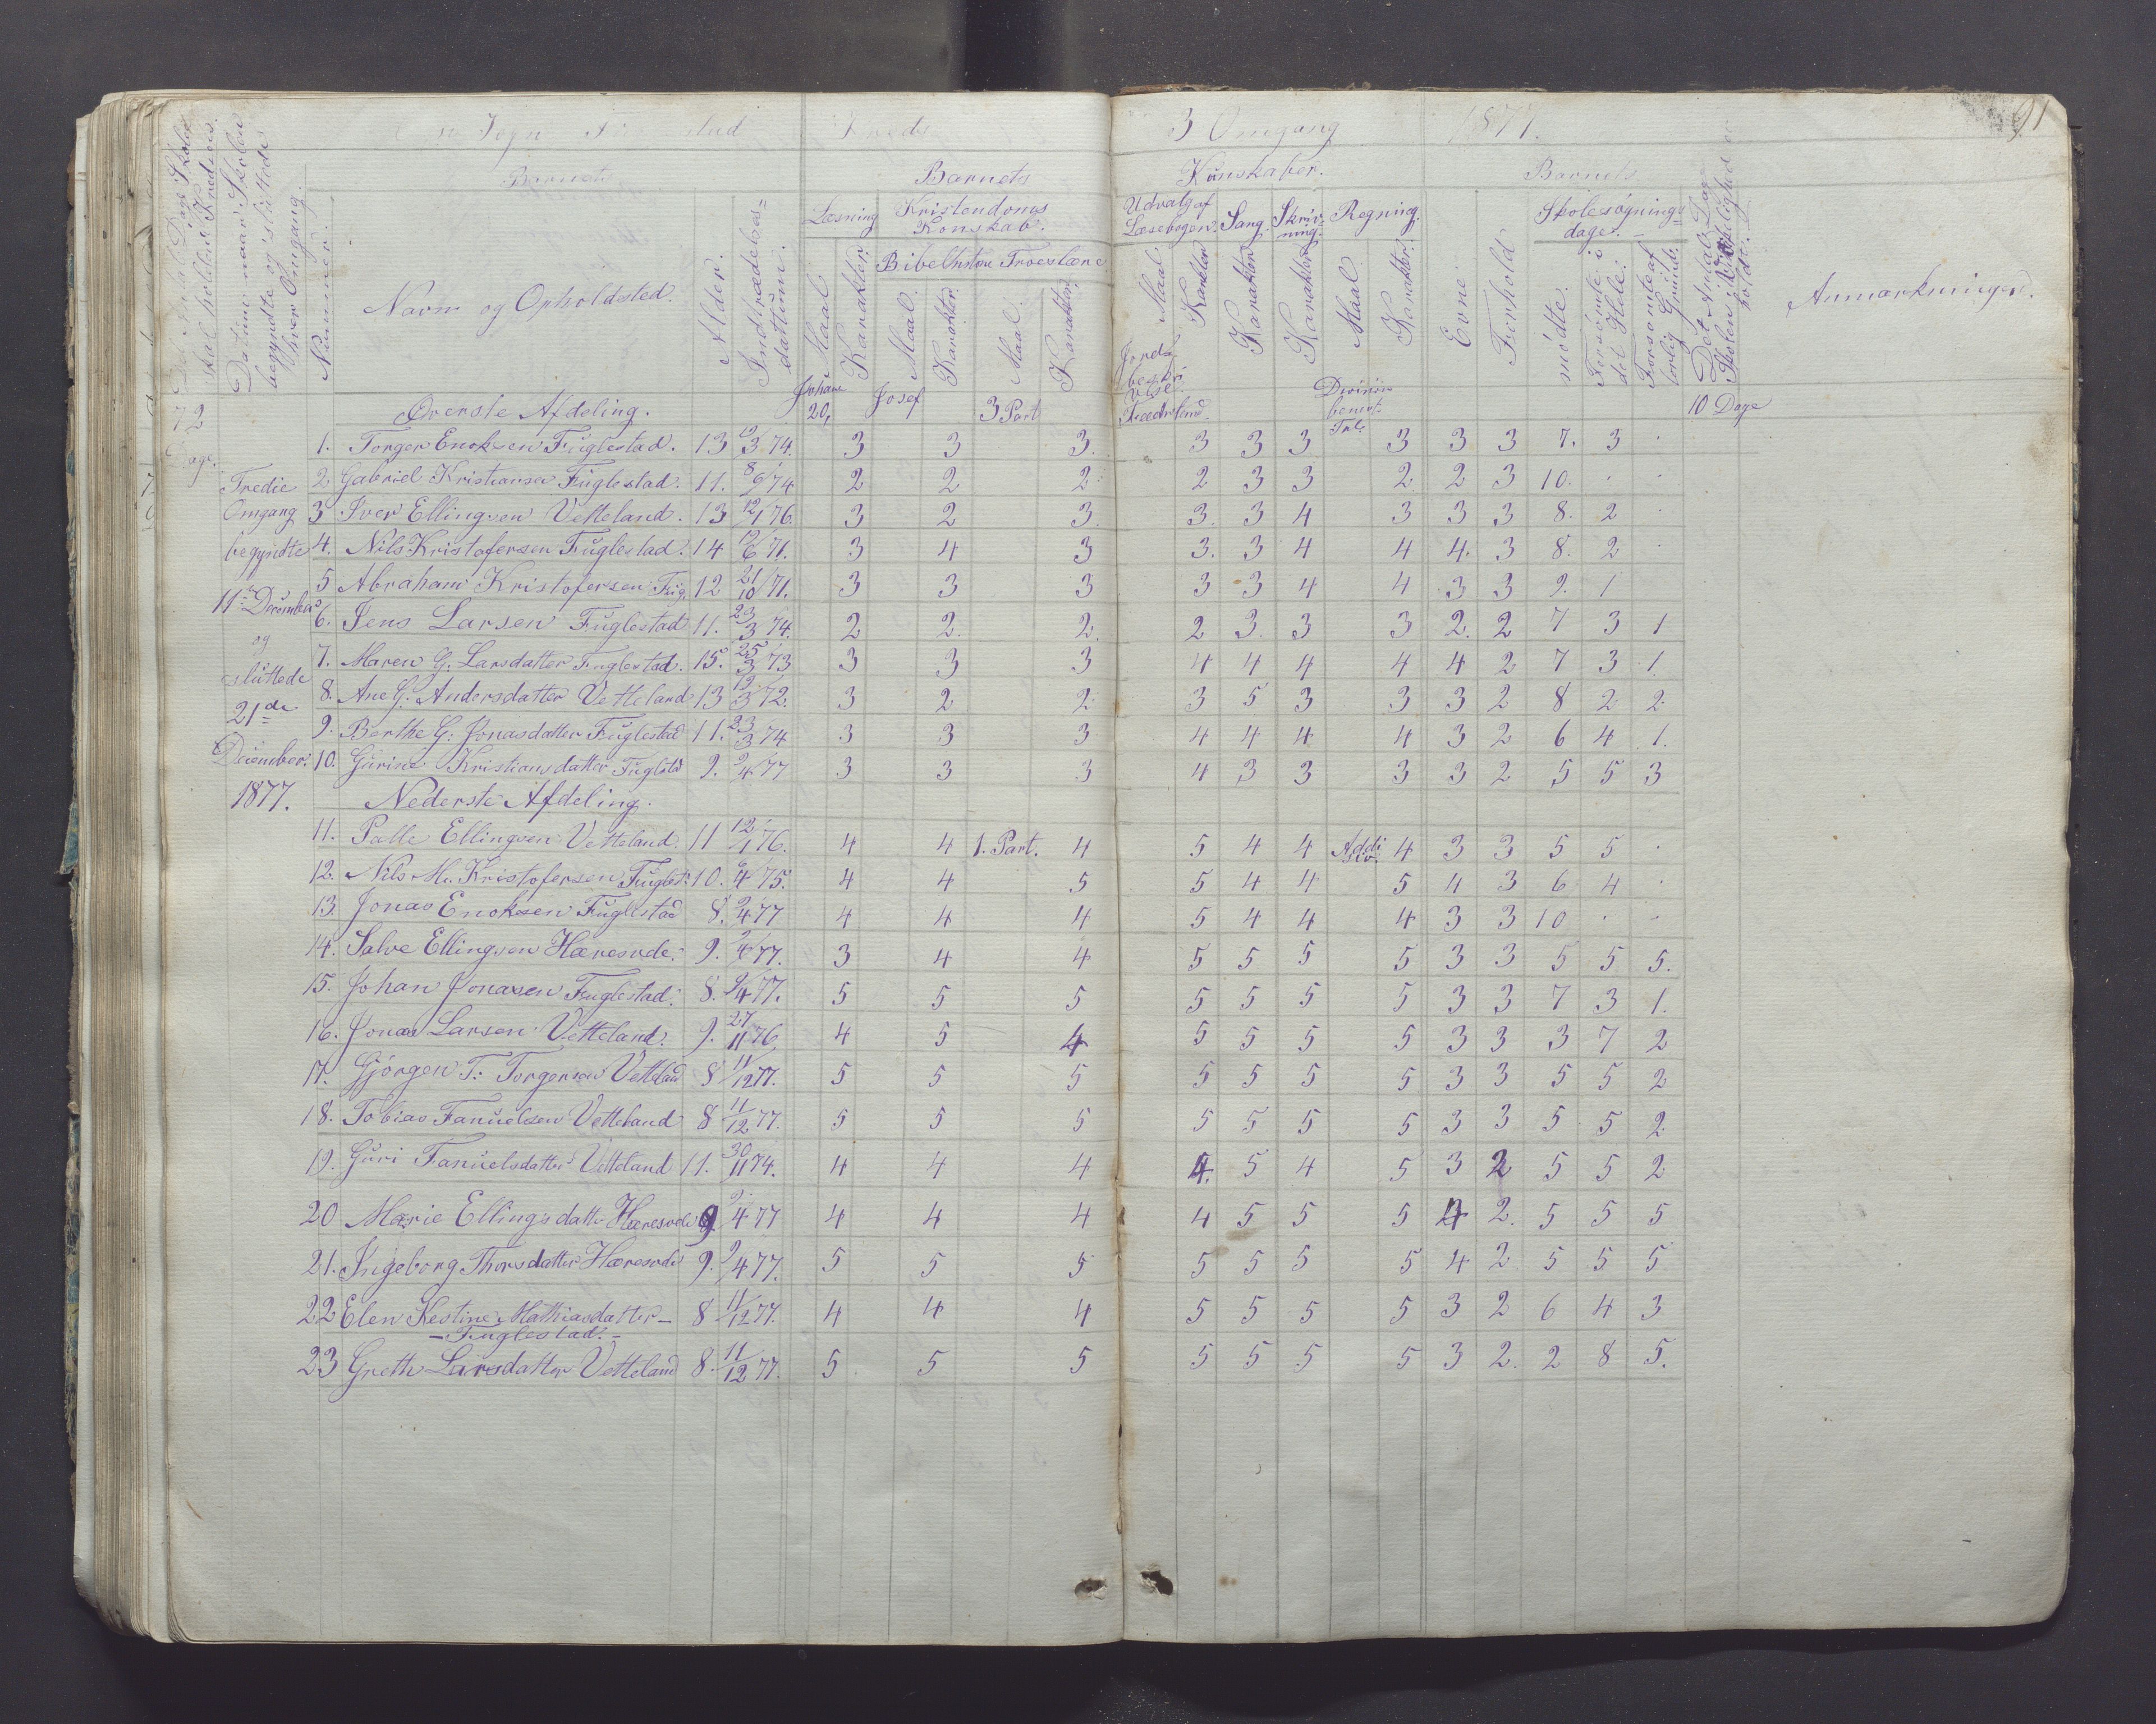 Sogn
Kreds
3 Omgang
1877.
91
Barnets
Barnets
Kundskaber.
Barnets
Datum naar Skolen
begyndte og sluttede
hver Omgang.
Nummer.
Navn og Opholdsted.
Alder.
Indtrædelses=
datum.
Læsning
Maal.
Karakter.
Kristendoms
Konskab.
Bibelhistorie Troeslære
Maal.
Karakter.
Maal.
Karakter.
Udvalg af
Læsebogen.
Maal.
Karakter
Sang.
Karakter
Skriv-
ning.
Karakter
Regning.
Maal.
Karakter.
Evne
Forhold
Skolesøgnings
dage.
mødte.
Forsømte i
det Hele.
Forsømte af
lovlig Grund.
Det Antal Dage
Skolen i Virkelighed er
holdt.
Anmærkninger.
Johann
20,
Josef
3 Part
Jord
beskri
velse.
Fædreland
Division
benevnt
10 Dage
72
Dage.
Øverste Afdeling.
1. Torger Enoksen Fuglestad. 13 12/3 74. 3 3 3. 3 3 3 3 3 3 7. 3 .
Tredie
2 Gabriel Kristiansen Fuglestad. 11. 8/6 74 2 2 2. 2 3 3 2 2 3 10. . .
Omgang
3 Iver Ellingsen Vetteland. 13 12/1 76. 3 2 3. 3. 3 4 3 3 3 8. 2 .
begyndte
4. Nils Kristofersen Fuglestad. 14 12/6 71. 3 4 3 3. 3 4 4 4. 3 8. 2 .
5 Abraham Kristofersen Fug. 12 21/10 71. 3 3 3 3 3 4 4 3 3 9. 1
11te December
6. Jens Larsen Fuglestad 11. 23/3 74. 2 2. 2. 2 3. 3 3 2. 2 7 3 1
og
7. Maren G. Larsdatter Fuglestad. 15. 25/3 73 3 3 3 4 4 4 4 4 2 7 3 1.
sluttede
8. Ane G. Andersdatter Vetteland 13 12/3 72. 3 2 2. 3 5 3 3 3 2 8 2 2.
21de
9. Berthe G. Jonasdatter Fuglestad 11. 23/3 74 3 3 3 4 4 4 4 3 2 6 4 1.
December.
10. Gurine Kristiansdatter Fuglstd 9. 9/4 77 3 3 3 4 3 3 3 3 2 5 5 3
1877.
Nederste Afdeling.
11. Palle Ellingsen Vetteland. 11 12/1 76. 4 4 1. Part. 4 5 4 4 Addi 4 3 3 5 5 .
12. Nils M. Kristofersen Fuglest. 10. 6/4 75. 4 4 5 5 4 4 5 4 3 6 4 .
13. Jonas Enoksen Fuglestad 8. 9/4 77 4 4 4 5 4 4 4 3 3 10 . .
14. Salve Ellingsen Hæresvde. 9. 9/4 77. 3 4 4 5 5 5 5 3 3 5 5 5.
15. Johan Jonasen Fuglestad. 8. 9/4 77. 5 5 5 5 5 5 5 3 3 7 3 1.
16. Jonas Larsen Vetteland. 9. 27/11 76 4 5 4 5 5 5 5 3 3 3 7 2
17. Gjørgen T. Torgersen Vetteland 8 11/12 77. 5 5 5 5 5 5 5 3 3 5 5 2
18. Tobias Fanuelsen Vetteland 8 11/12 77. 5 5 5 5 5 5 5 3 3 5 5 2
19. Guri Fanuelsdatter Vetteland 11. 30/11 74. 4 4 4 4. 5 4 5 3 2 5 5 2
20 Marie Ellingsdatter Hæresvde 9 9/4 77 4 4 4 4 5 5 5 4 2. 5 5 5
21. Ingeborg Thorsdatter Hæresvde 9. 9/4 77. 5 5 5 5 5 5 5 4 2 5 5 5
22 Elen Kestine Mathiasdatter- 8 11/12 77. 4 4 4 5 5 5 5 3 2 6 4 3
- Fuglestad. -
23 Grethe Larsdatter Vetteland 8. 11/12 77. 5 5 5 5 5 5 5 3 2. 2 8 5.